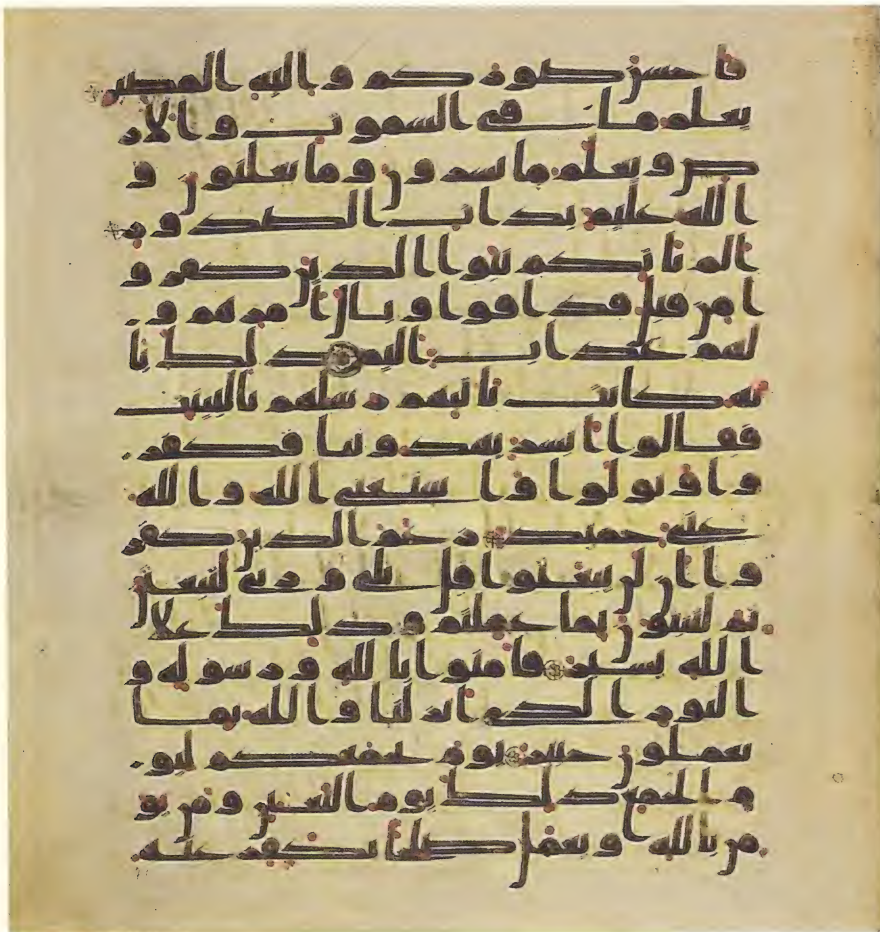 فاحسن صوركم واليه المصير
يعلم ما في السموت والار
ض ويعلم ما تسرون وما تعلنون و
الله عليم بذات الصدور
الم ياتكم نبوا الذين كفرو
ا من قبل فذاقوا وبال امرهم و
لهم عذاب اليم ذلك با
نه كانت تاتيهم رسلهم بالبينت
فقالوا ابشر يهدوننا فكفر
وا وتولوا واستغنى الله والله
غني حميد زعم الذين كفر
وا ان لن يبعثوا قل بلى وربي لتبعثن
ثم لتنبون بما عملتم وذلك علا
الله يسير فامنوا بالله ورسوله و
النور الذي انزلنا والله بما
تعملون خبير يوم يجمعكم ليو
م الجمع ذلك يوم التغبن ومن يو
من بالله ويعمل صلحا يكفر عنه